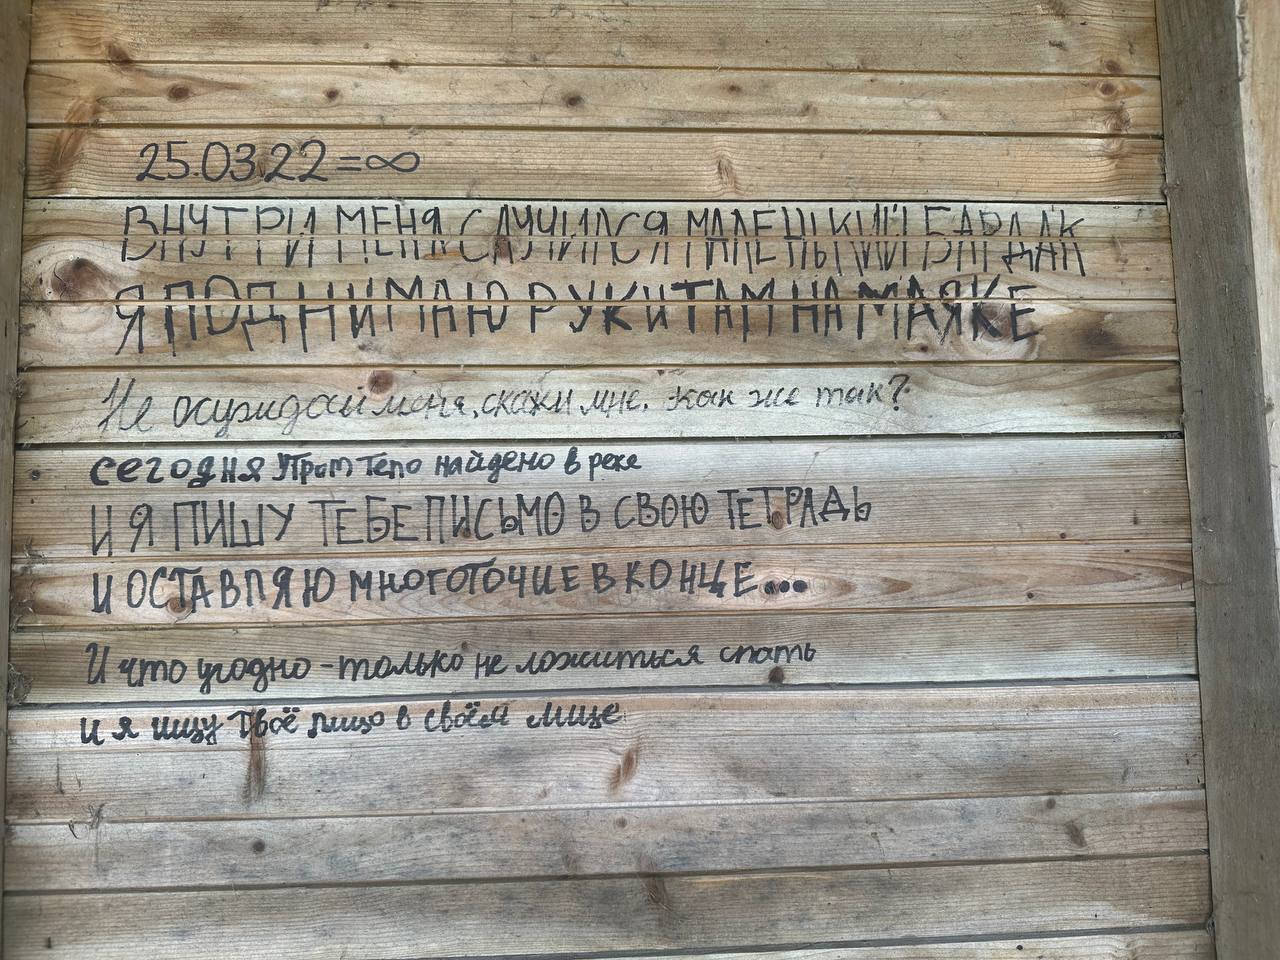 25.03.22=∞
ВНУТРИ МЕНЯ СЛУЧИЛСЯ МАЛЕНЬКИЙ БАРДАК
Я ПОДНИМАЮ РУКИ ТАМ НА МАЯКЕ
Не осуждай меня, скажи мне. Как же так?
сегодня утром тело найдено в реке
И Я ПИШУ ТЕБЕ ПИСЬМО В СВОЮ ТЕТРАДЬ
И ОСТАВЛЯЮ МНОГОТОЧИЕ В КОНЦЕ...
И что угодно - только не ложиться спать
и я ищу твоё лицо в своём лице